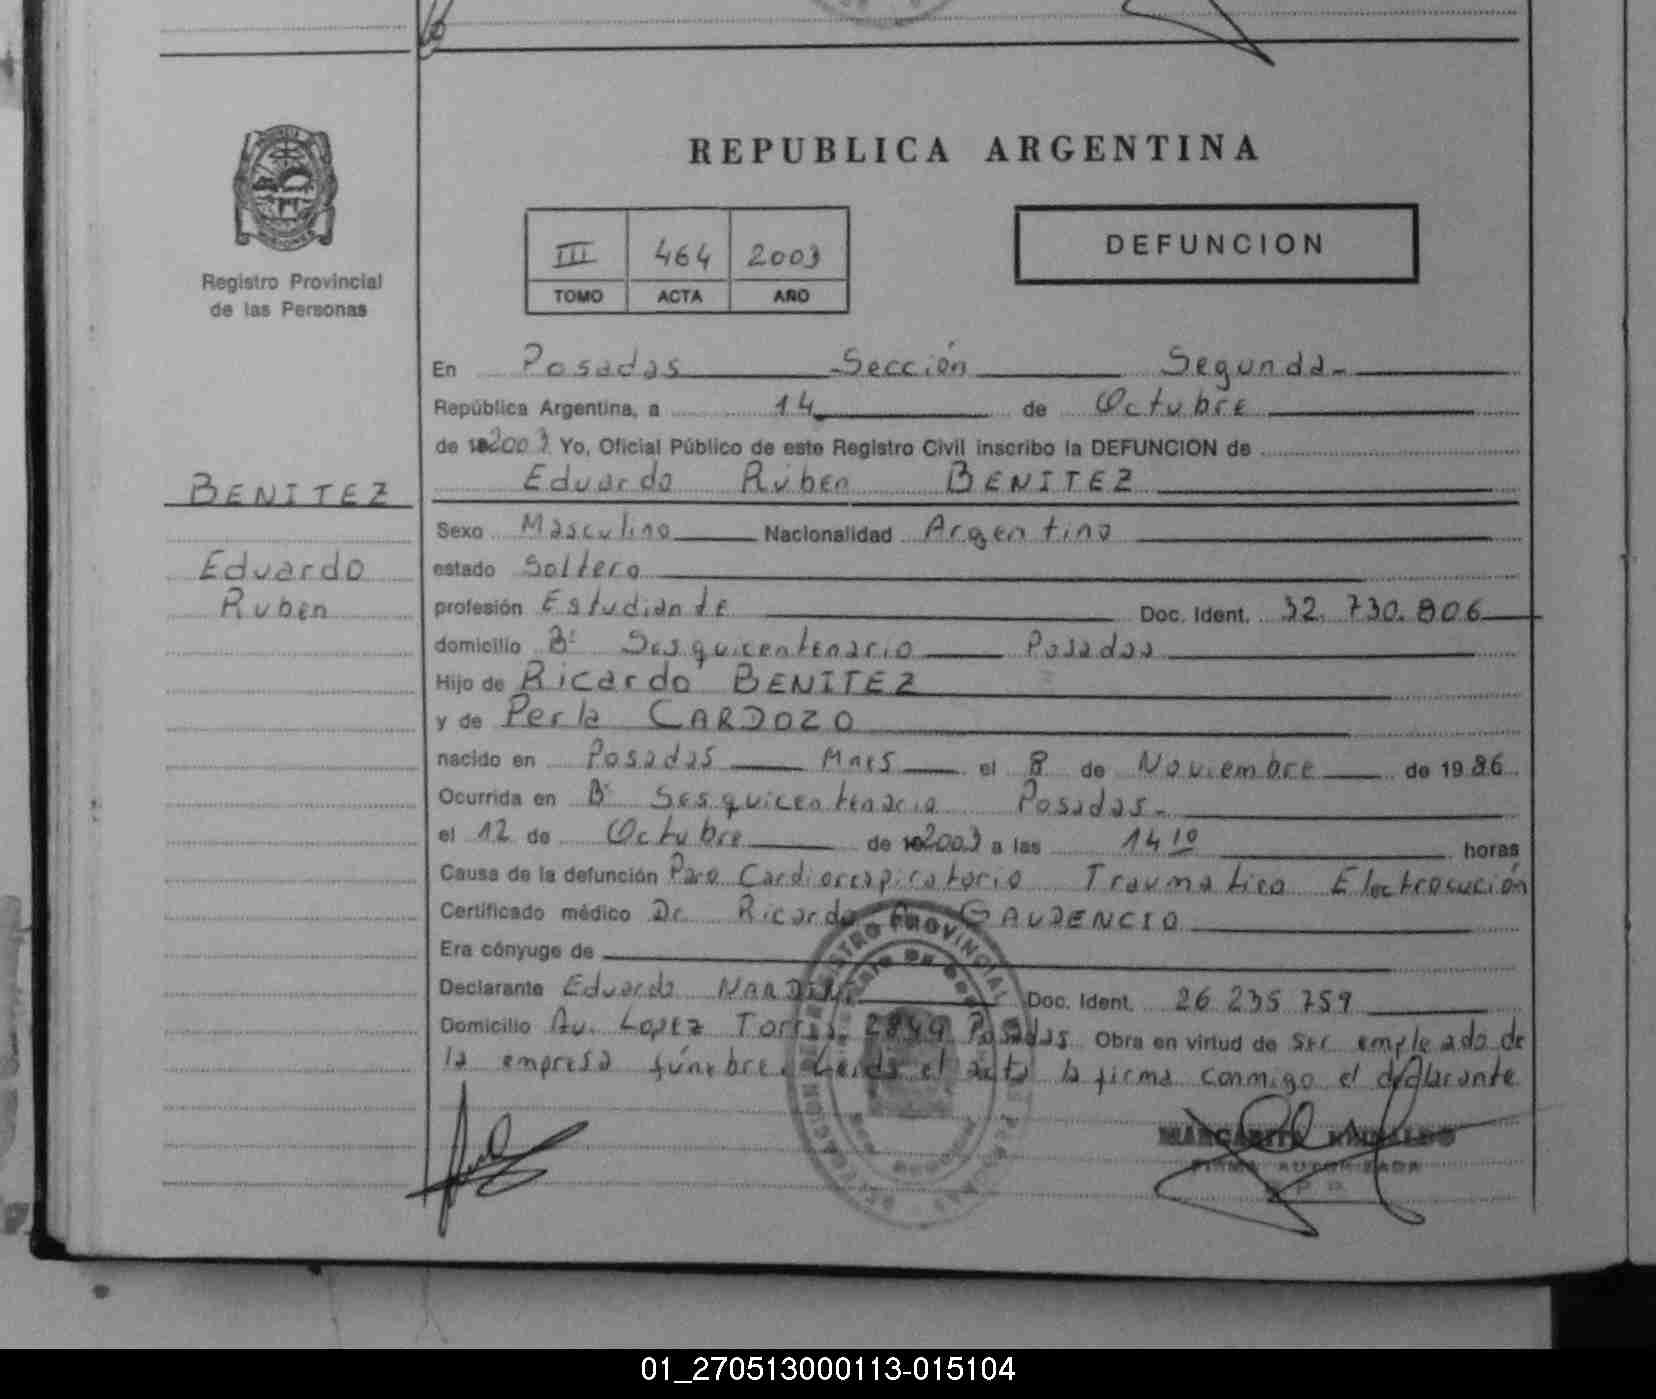 REPUBLICA ARGENTINA
III 464 2003
TOMO ACTA AÑO
DEFUNCION
Registro Provincial
de las Personas
En Posadas Sección Segunda
República Argentina, a 14 de Octubre
de 2003 Yo, Oficial Público de este Registro Civil inscribo la DEFUNCION de
BENITEZ
Eduardo Ruben BENITEZ
Sexo Masculino Nacionalidad Argentino
Eduardo
estado Soltero
Ruben
profesión Estudiante Doc. Ident. 32.730.806
domicilio Bº Sesquicentenario Posadas
Hijo de Ricardo BENITEZ
y de Perla CARDOZO
nacido en Posadas Mnes el 8 de Noviembre de 1986
Ocurrida en Bº Sesquicentenario Posadas
el 12 de Octubre de 2003 a las 14 10 horas
Causa de la defunción Paro Cardiorespiratorio Traumatico Electrocución
Certificado médico Dr Ricardo GAUDENCIO
Era cónyuge de
Declarante Eduardo Doc. Ident. 26 235 759
Domicilio Av. Lopez Torres 2849 Posadas Obra en virtud de ser empleado de
la empresa fúnebre. Leida el acta la firma conmigo el declarante
REGISTRO PROVINCIAL
FIRMA AUTORIZADA
01_270513000113-015104